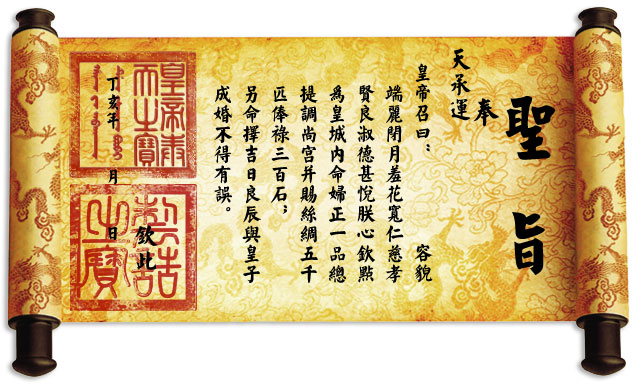 聖旨
奉
天承運
皇帝召曰： 容貌
端麗閉月羞花寬仁慈孝
賢良淑德甚悅朕心欽點
爲皇城內命婦正一品總
提調尚宮并賜絲綢五千
匹俸祿三百石；
另命擇吉日良辰與皇子
成婚不得有誤。
欽此
丁亥年 月 日
皇帝奉
天之寶
制誥
之寶